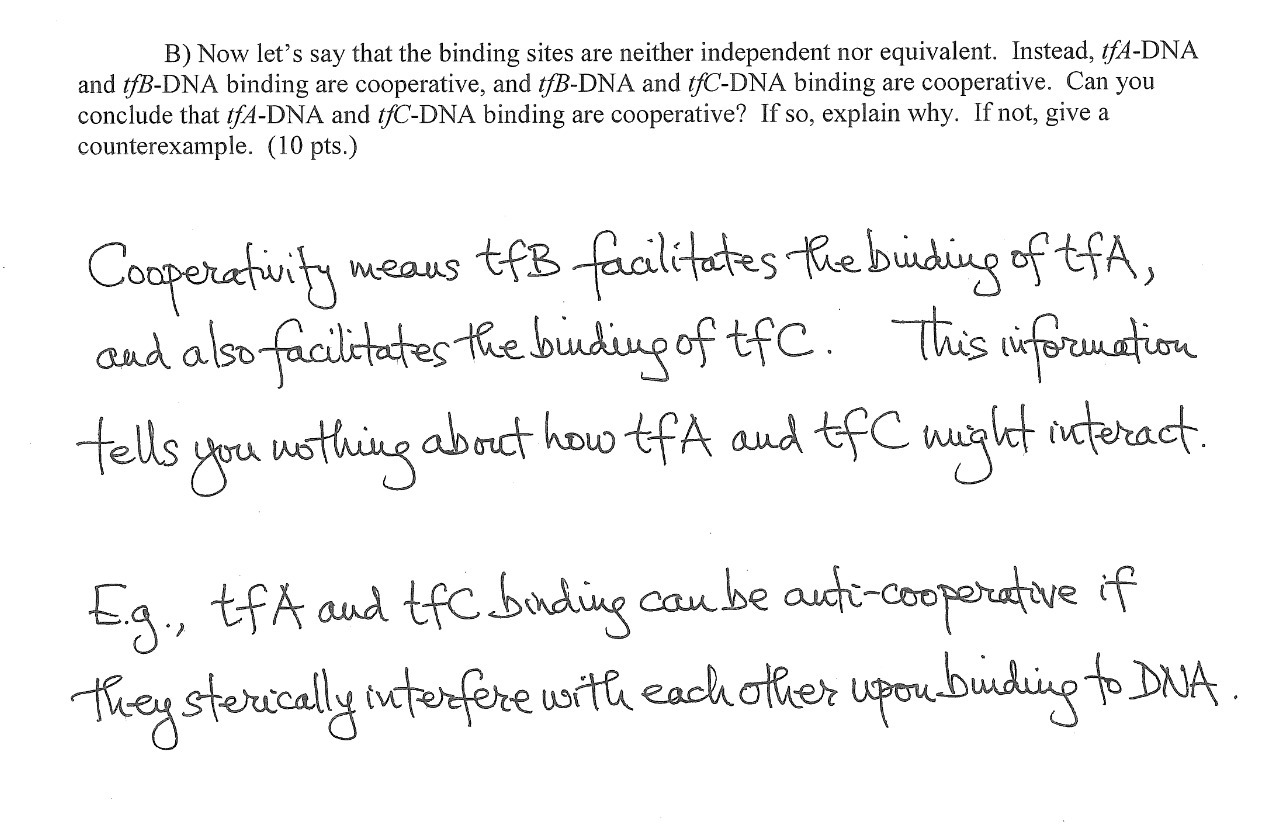 B) Now let's say that the binding sites are neither independent nor equivalent. Instead, tfA-DNA
and tfB-DNA binding are cooperative, and tfB-DNA and tfC-DNA binding are cooperative. Can you
conclude that tfA-DNA and tfC-DNA binding are cooperative? If so, explain why. If not, give a
counterexample. (10 pts.)
Cooperativity means tfB facilitates the binding of tfA,
and also facilitates the binding of tfC. This information
tells you nothing about how tfA and tfC might interact.
E.g., tfA and tfC binding can be anti-cooperative if
they sterically interfere with each other upon binding to DNA.